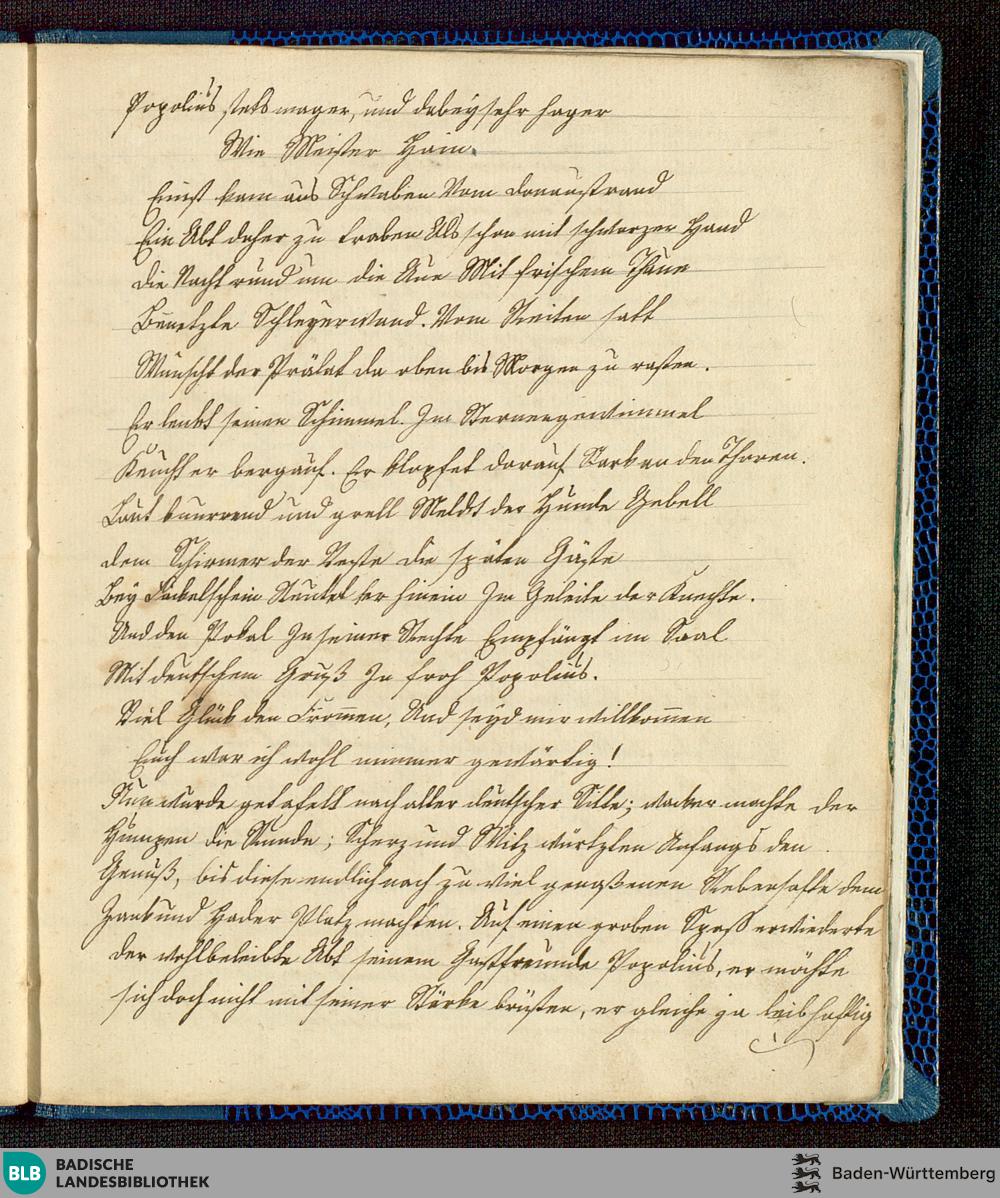 Popolius, stets mager, und dabey sehr hager
Wie Meister Hain.
Einst kam aus Schwaben Vom Donaustrand
Ein Abt daher zu traben Als schon mit schwarzer Hand
die Nacht rund um die Aue Mit frischem Thaue
Benetzte Schleyerwand. Vom Reiten satt
Wünscht der Prälat da oben bis Morgen zu rasten.
Er lenkt seinen Schimmel. Im Sternengewimmel
Keucht er bergauf. Er klopfet darauf Stark an den Thoren.
Laut knurrend und grell Meldt der Hunde Gebell
dem Schirmer der Veste die späten Gäste
Bey Fackelschein Reutet er hinein Im Geleite der Knechte.
Und den Pokal In seiner Rechte Empfängt im Saal
Mit deutschem Gruß In froh Popolius.
Viel Glück den Frommen, Und seyd mir willkommen
Euch war ich wohl nimmer gewärtig!
Nun wurde getafelt nach alter deutscher Sitte; wacker machte der
Humpen die Runde; Scherz und Witz würtzten Anfangs den
Genuß, bis diese endlich nach zu viel genoßenen Rebensafte dem
Zank und Hader Platz machten. Auf einen groben Spass erwiederte
der wohlbeleibte Abt seinem Gastfreunde Popolius, er möchte
sich doch nicht mit seiner Stärke brüsten, er gleiche ja leibhaftig
BLB BADISCHE
LANDESBIBLIOTHEK
Baden-Württemberg